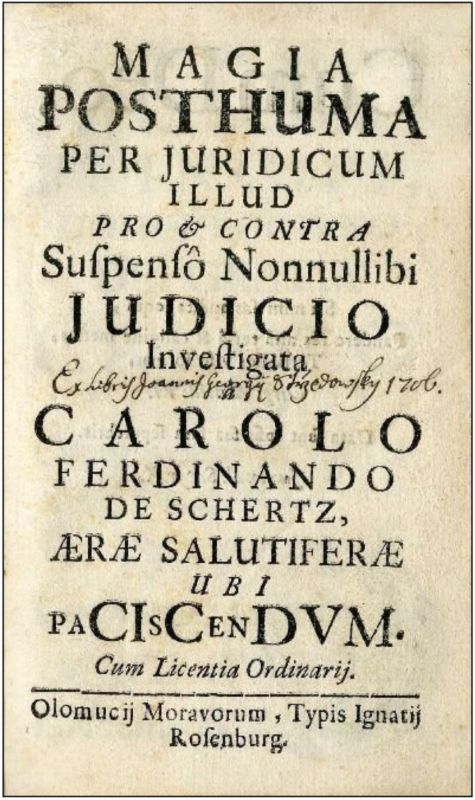 MAGIA
POSTHUMA
PER JURIDICUM
ILLUD
PRO & CONTRA
Suſpenſô Nonnullibi
JUDICIO
Inveſtigata
Ex libris Joannis Georgij Strzedowsky 1706.
A
CAROLO
FERDINANDO
DE SCHERTZ,
ÆRÆ SALUTIFERÆ
UBI
PACIsCENDVM.
Cum Licentia Ordinarij.
Olomucij Moravorum, Typis Ignatij
Roſenburg.